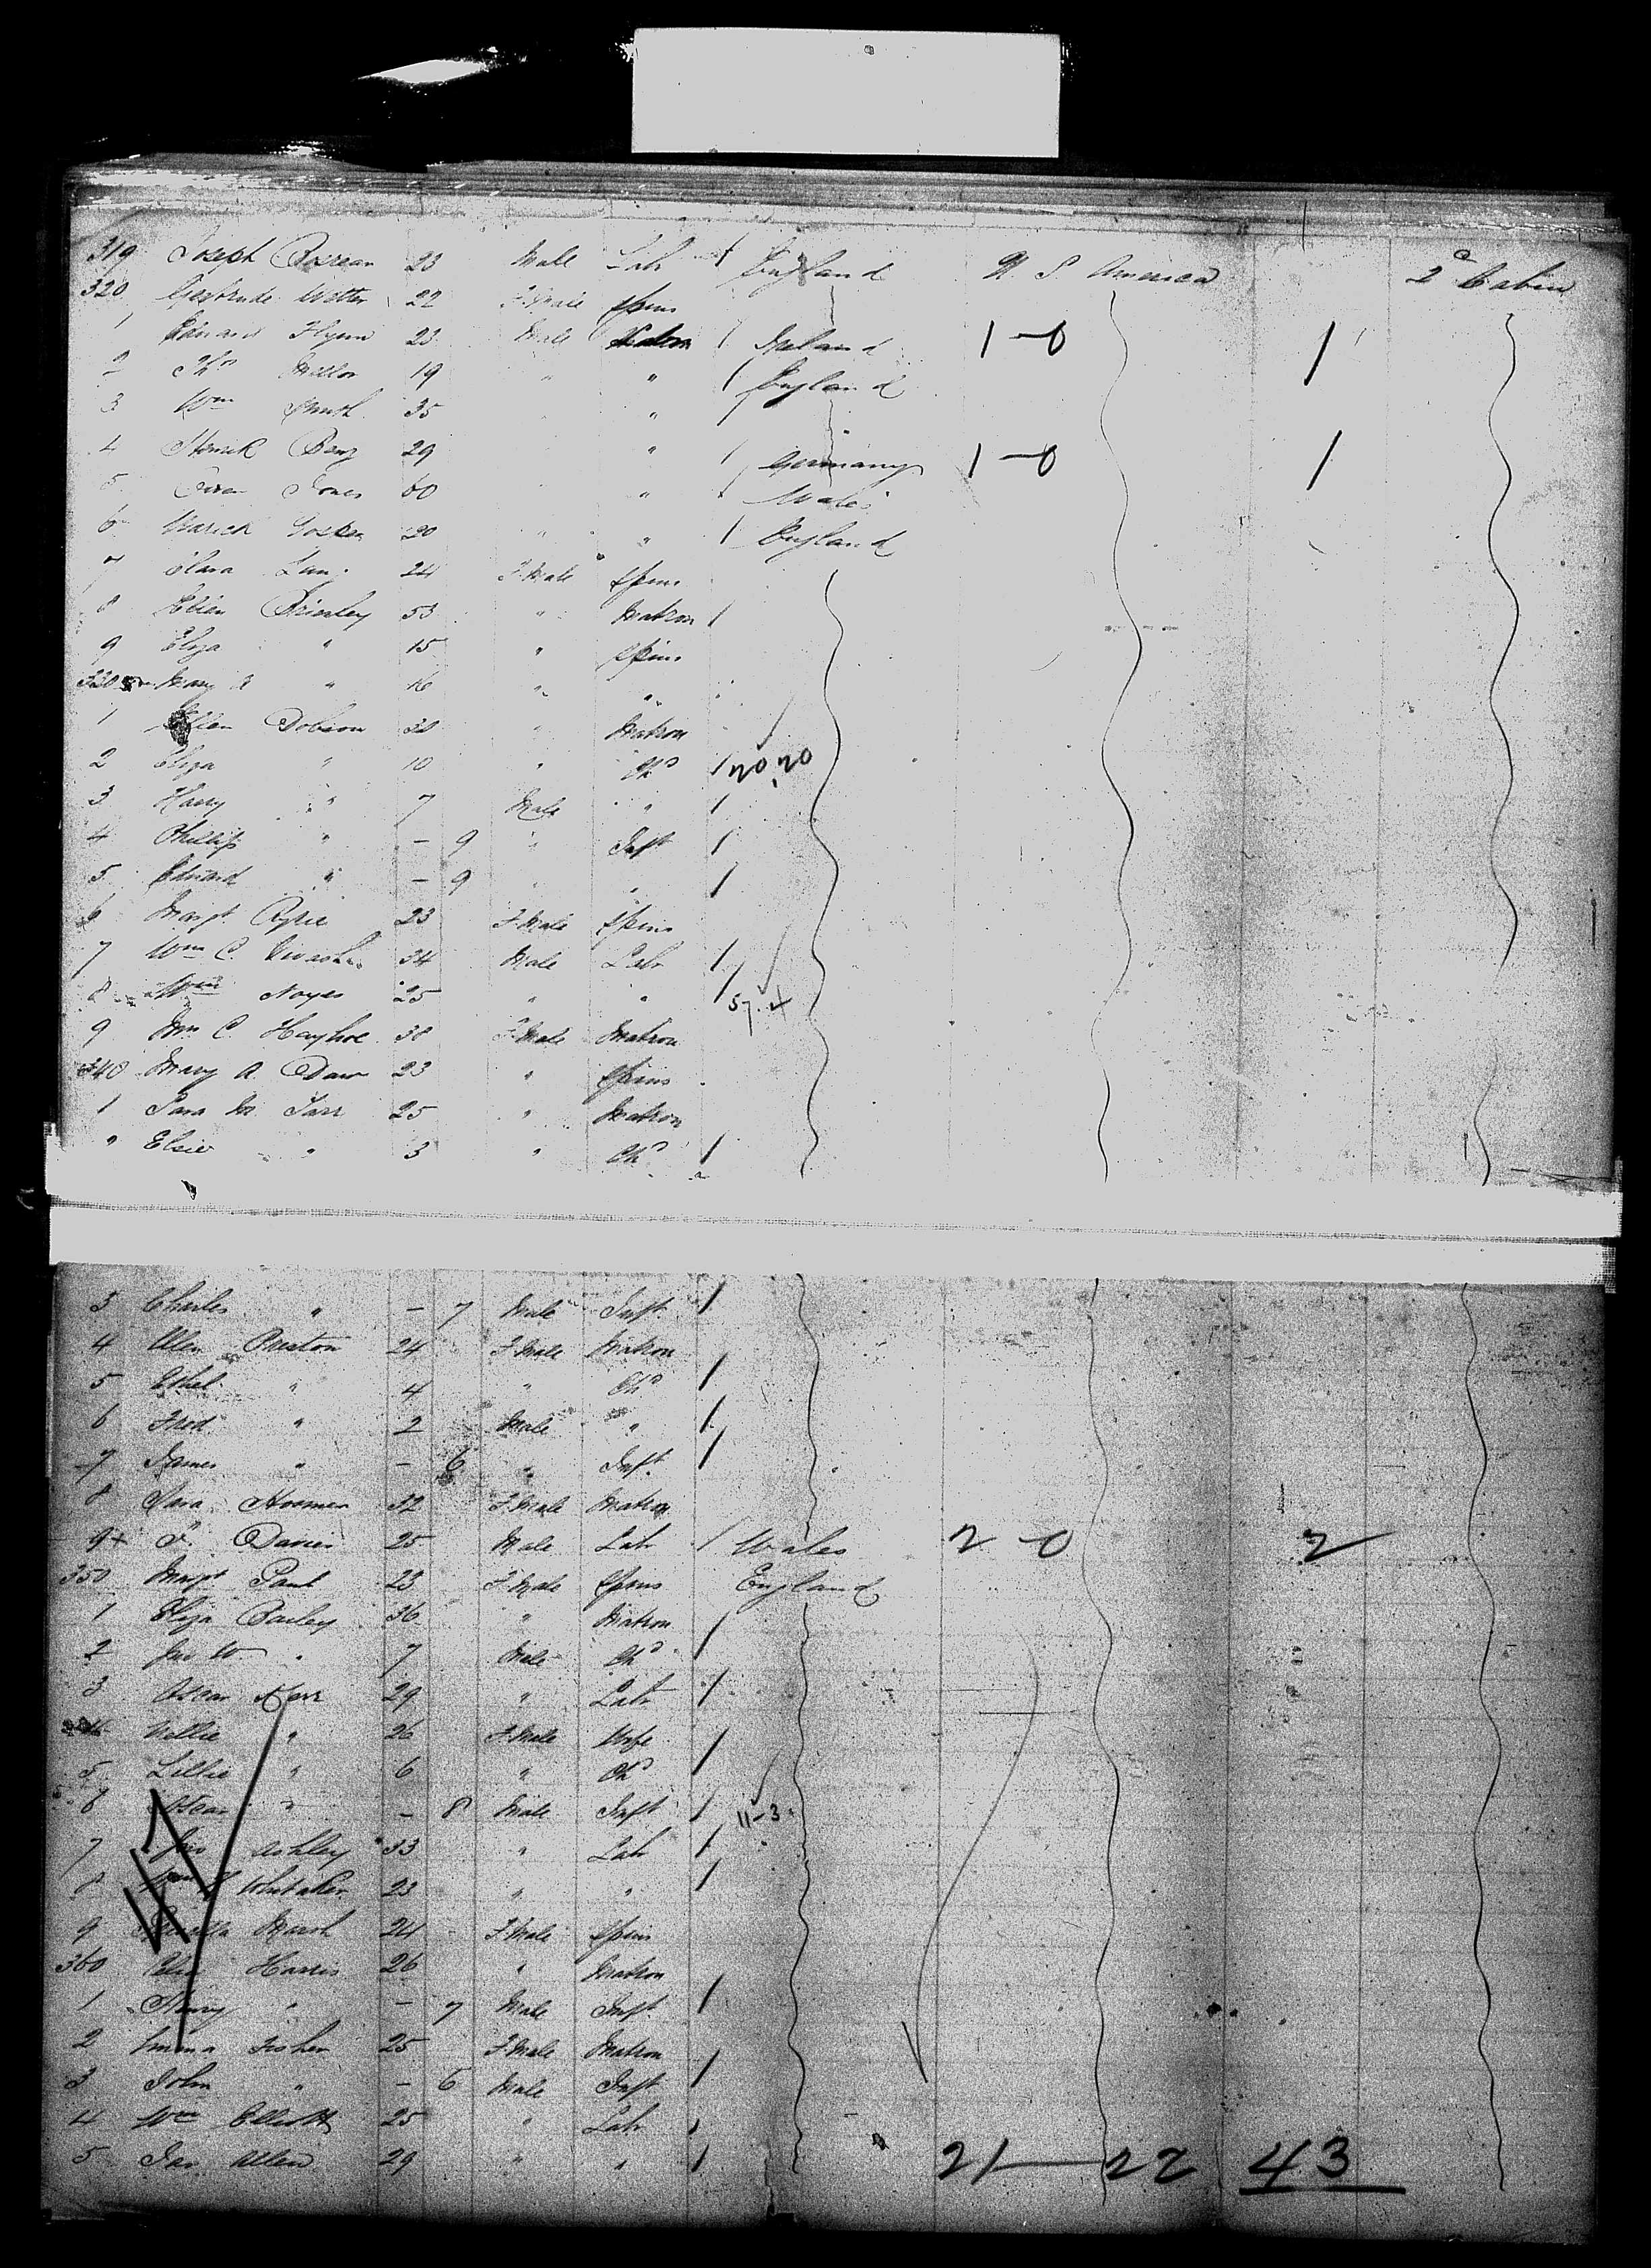 319 Joseph 23 Male Labr 1 England U S America 2d Cabin
320 Gertrude 22 F.Male Spins
1 Edward Flynn 23 Male 1 Ireland 1-0 1
2 Thos 19 " " 1 England
3 Wm Smith 35 "
4 29 " 1 Germany 1-0 1
5 Jones 60 " Wales
6 20 " 1 England
7 Clara 24 F.Male Spins
8 Ellen Brierley 53 " Matron 1
9 Eliza " 15 " Spins
330 Mary A " 16 " "
1 Ellen Dobson 30 " Matron
2 Eliza " 10 " Chd 1 20.20
3 Harry " 7 Male " 1
4 Phillip " - 9 " Inft 1
5 Edward " - 9 " " 1
6 Margt 23 F.Male Spins
7 Wm C. 34 Male Labr 1
8 Wm Noyes 25 " " 1 57.4
9 Mrs C. Hayhoe 38 F.Male Matron
340 Mary A. Daw 23 " Spins
1 Sara M. Tarr 25 " Matron
" Elsie " 3 " Chd 1
3 Charles " - 7 Male Inft 1
4 Preston 24 F.Male Matron
5 Ethel " 4 " Chd 1
6 Fred " 2 Male " 1
7 James " - 6 " Inft 1
8 Sara 32 F.Male Matron
9+ Davies 25 Male Labr 1 Wales 2 0 2
350 Margt 23 F.Male Spins England
1 Eliza Bailey 36 " Matron
2 Jno W " 7 Male Chd 1
3 Oscar 29 " Labr 1
Nellie " 26 F.Male Wife
5 Lillie " 6 " Chd 1
6 Oscar " - 8 Male Inft 1 11-3
7 Jno Ashley 33 " Labr 1
8 Whitaker 23 " " 1
9 Marsh 24 F.Male Spins
360 Harris 26 " Matron
1 Henry " - 7 Male Inft 1
2 Emma Fisher 25 F.Male Matron
3 John " - 6 Male Inft 1
4 Wm Elliott 25 " Labr 1
5 Jas Allen 29 " " 1 21-22 43